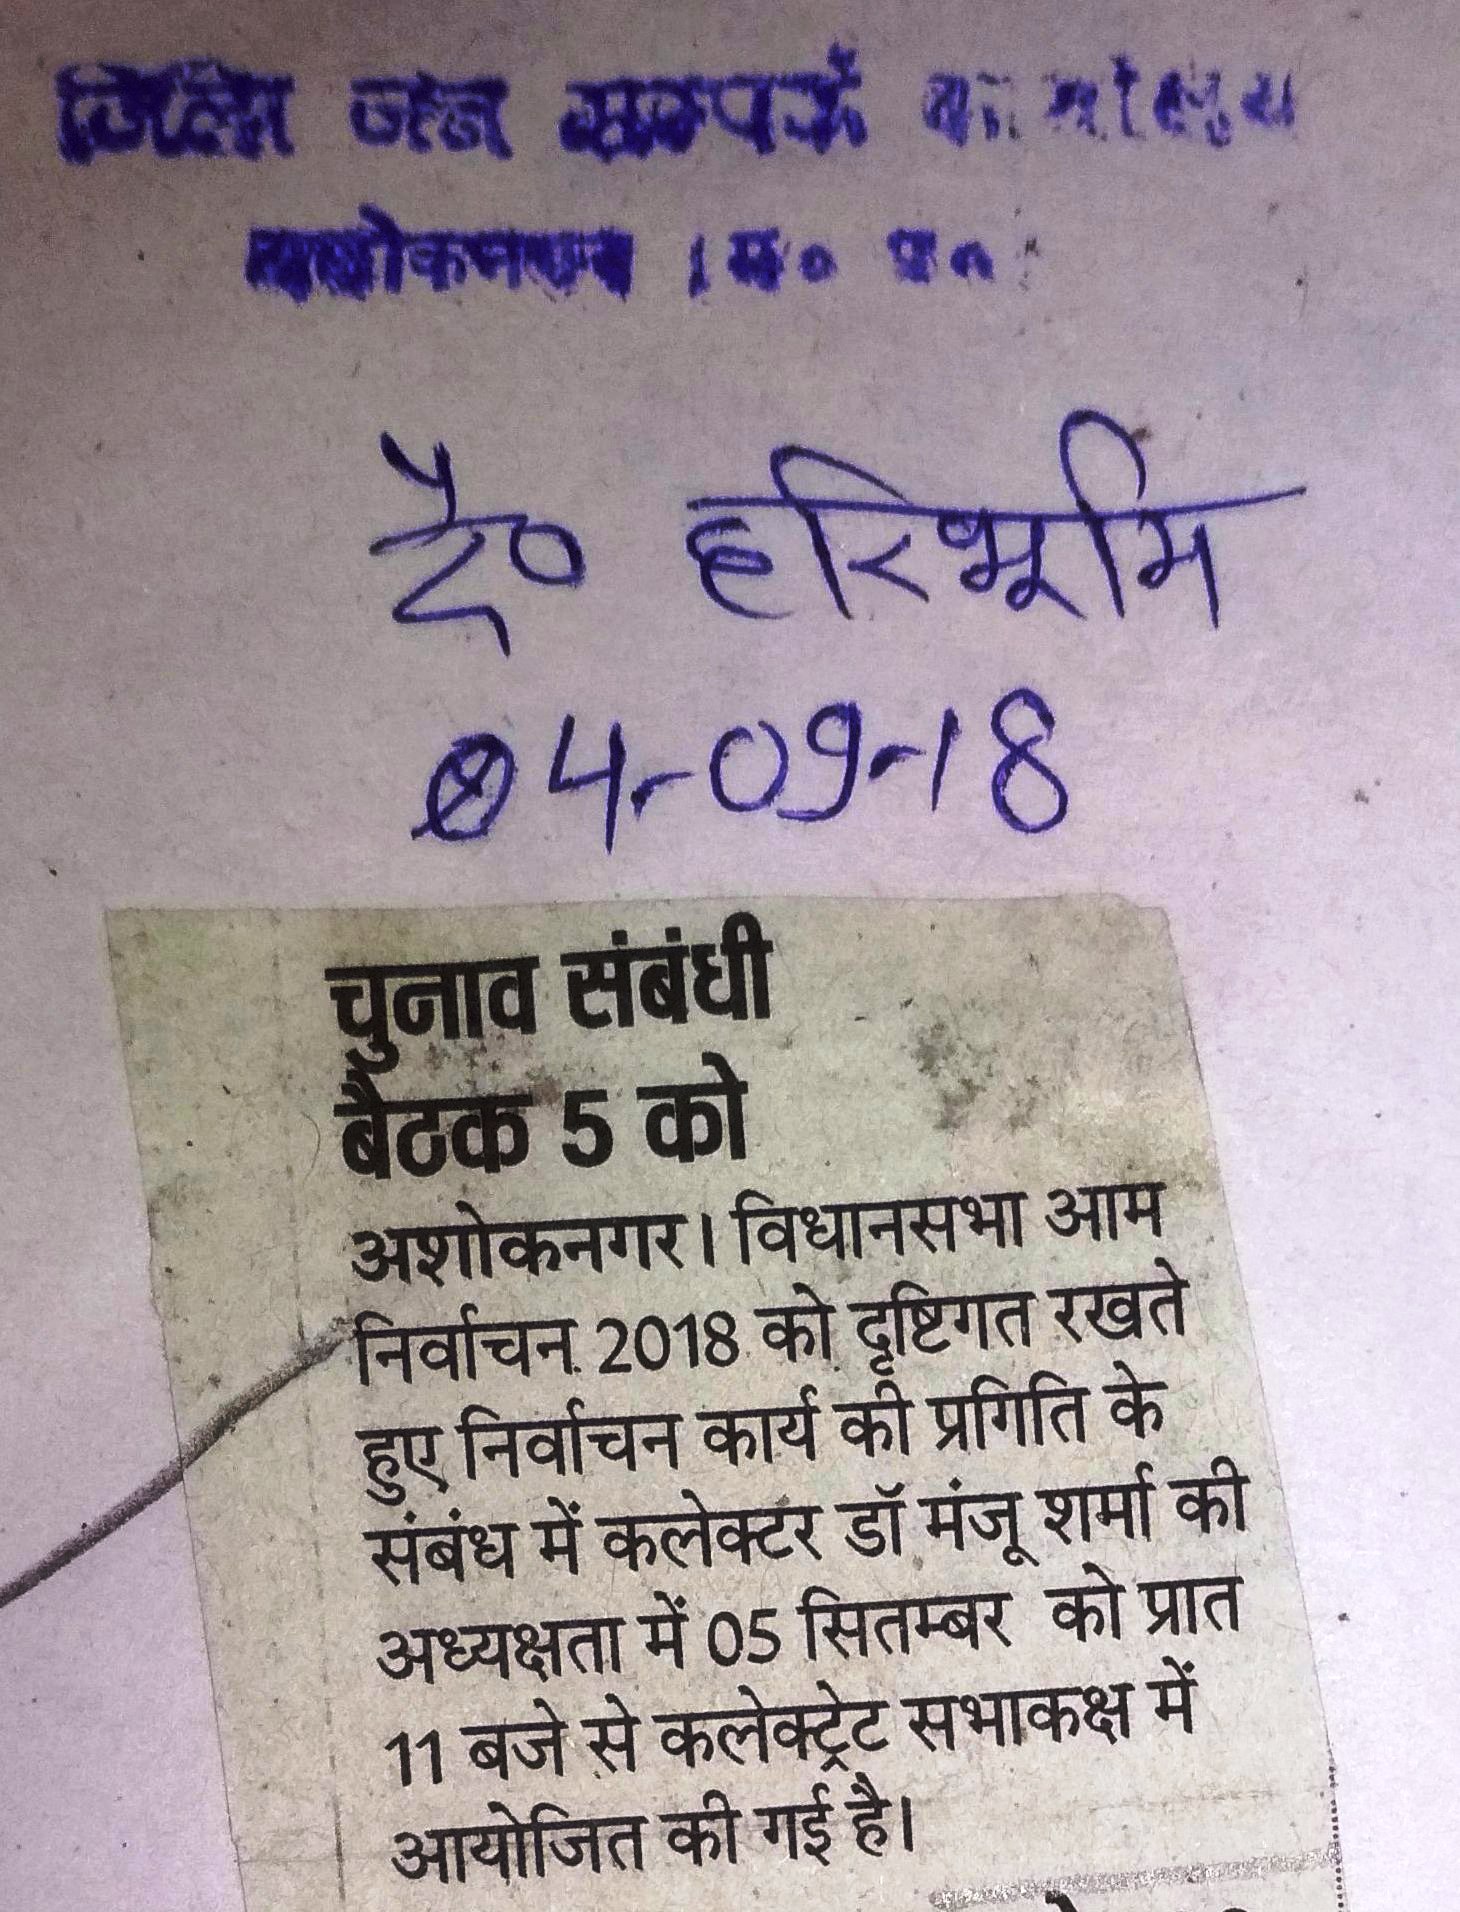 जिला जन सम्पर्क कार्यालय
अशोकनगर (म० प्र०
दै० हरिभूमि
04-09-18
चुनाव संबंधी
बैठक 5 को
अशोकनगर। विधानसभा आम
निर्वाचन 2018 को दृष्टिगत रखते
हुए निर्वाचन कार्य की प्रगिति के
संबंध में कलेक्टर डॉ मंजू शर्मा की
अध्यक्षता में 05 सितम्बर को प्रात
11 बजे से कलेक्ट्रेट सभाकक्ष में
आयोजित की गई है।